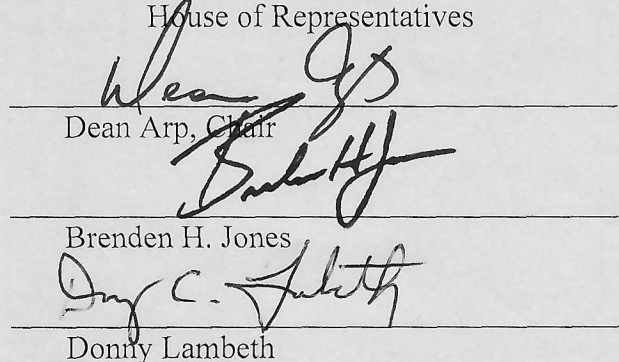 House of Representatives
Dean Arp
Dean Arp, Chair
Brenden H. Jones
Brenden H. Jones
Donny C. Lambeth
Donny Lambeth